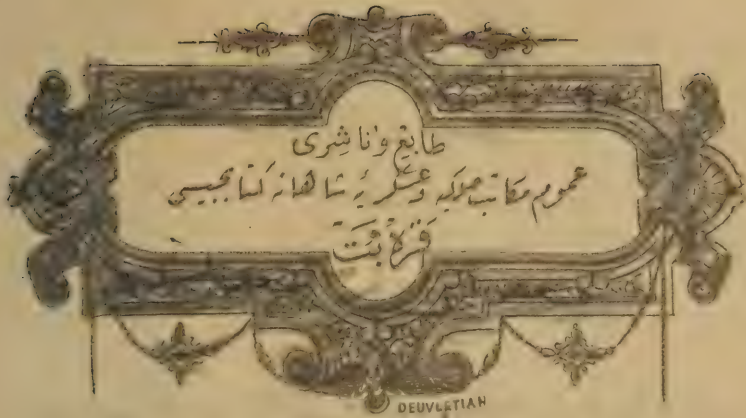 طابع وناشرى
عموم مكاتب ملكيه وعسكريۀ شاهانه كتابجيسى
قره بت
DEUVLETIAN